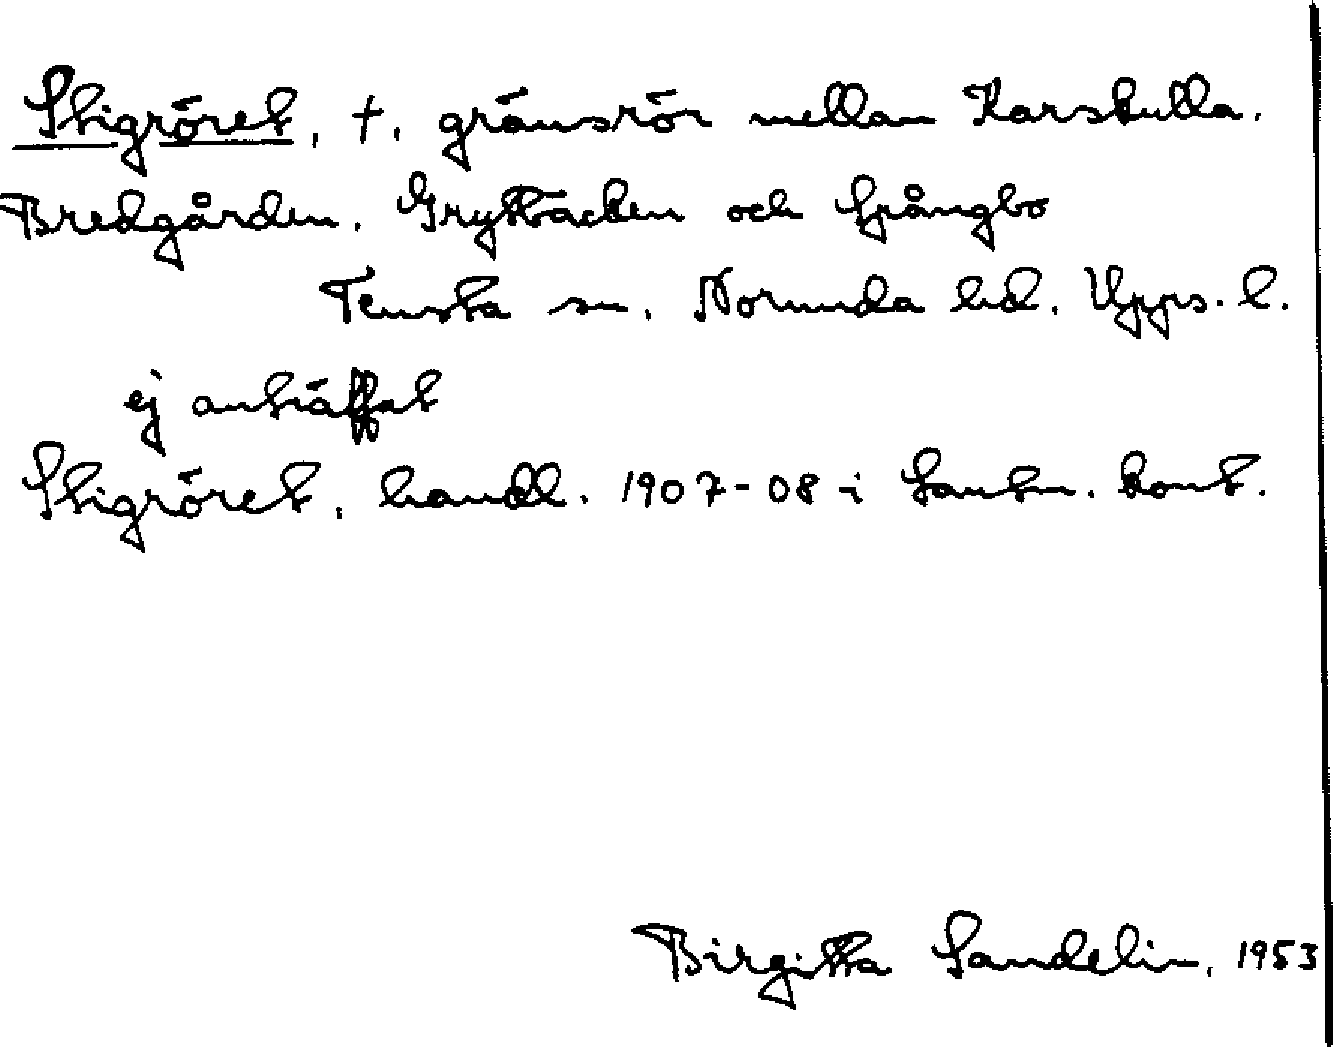 Stigröret, †, gränsrör mellan Karskulla,
Bredgården, Gryttbacken och Spångbo
Tensta sn, Norunda hd, Upps. l.
ej anträffat
Stigröret, handl. 1907-08 i Lantm. kont.
Birgitta Sandelin, 1953